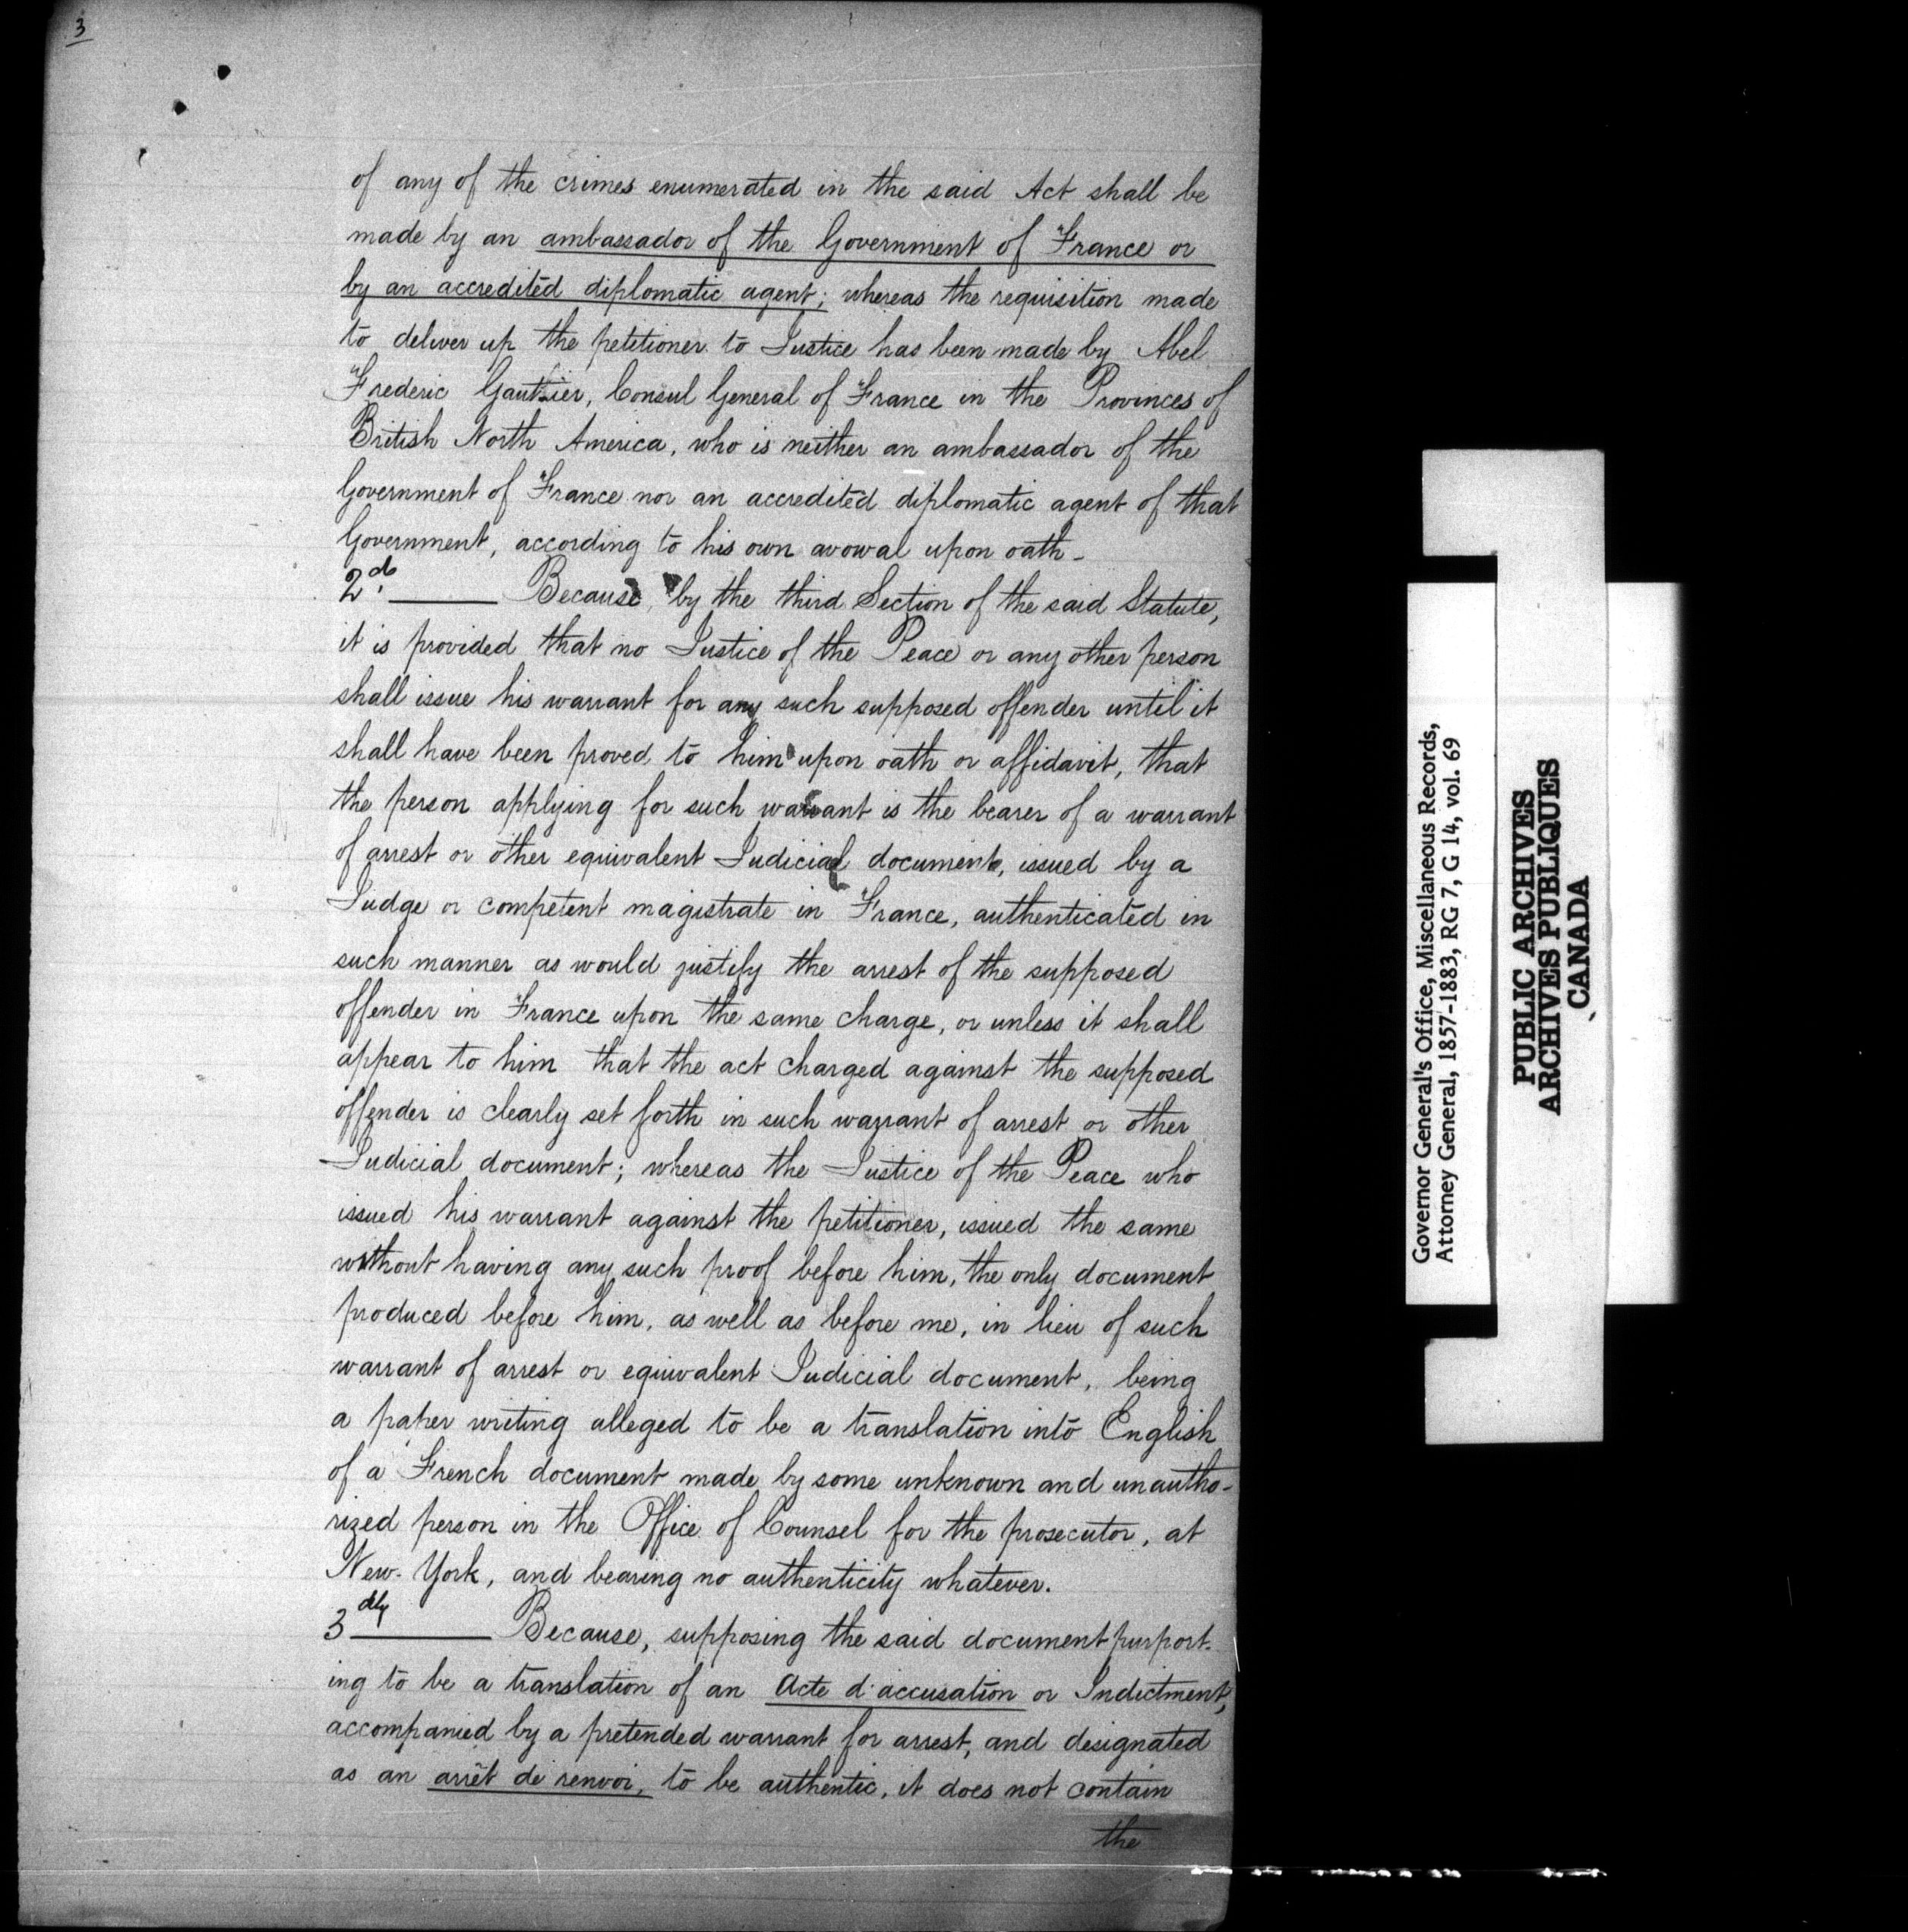 3
of any of the crimes enumerated in the said Act shall be
made by an ambassador of the Government of France or
by an accredited diplomatic agent; whereas the requisition made
to deliver up the petitioner to Justice has been made by Abel
Frederic Gautier, Consul General of France in the Provinces of
British North America, who is neither an ambassador of the
Government of France nor an accredited diplomatic agent of that
Government, according to his own avowal upon oath-
2d. Because, by the third Section of the said Statute,
it is provided that no Justice of the Peace or any other person
shall issue his warrant for any such supposed offender until it
shall have been proved to him upon oath or affidavit, that
the person applying for such warrant is the bearer of a warrant
of arrest or other equivalent Judicial document, issued by a
Judge or competent magistrate in France, authenticated in
such manner as would justify the arrest of the supposed
offender in France upon the same charge, or unless it shall
appear to him that the act charged against the supposed
offender is clearly set forth in such warrant of arrest or other
Judicial document; whereas the Justice of the Peace who
issued his warrant against the petitioner, issued the same
without having any such proof before him, the only document
produced before him, as well as before me, in lieu of such
warrant of arrest or equivalent Judicial document, being
a paper writing alleged to be a translation into English
of a French document made by some unknown and unautho-
rized person in the Office of Counsel for the prosecutor, at
New-York, and bearing no authenticity whatever.
3dly Because, supposing the said document purport-
ing to be a translation of an Acte d'accusation or Indictment,
accompanied by a pretended warrant for arrest, and designated
as an arrêt de renvoi, to be authentic, it does not contain
the
Governor General's Office, Miscellaneous Records,
Attorney General, 1857-1883, RG 7, G 14, vol. 69
PUBLIC ARCHIVES
ARCHIVES PUBLIQUES
CANADA